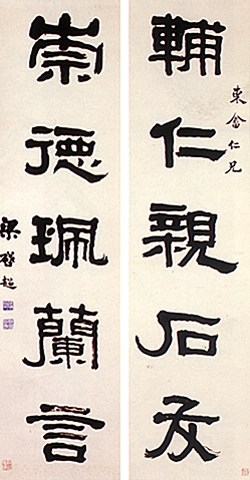 輔仁親石友
東畬仁兄
崇德珮蘭言
梁啓超